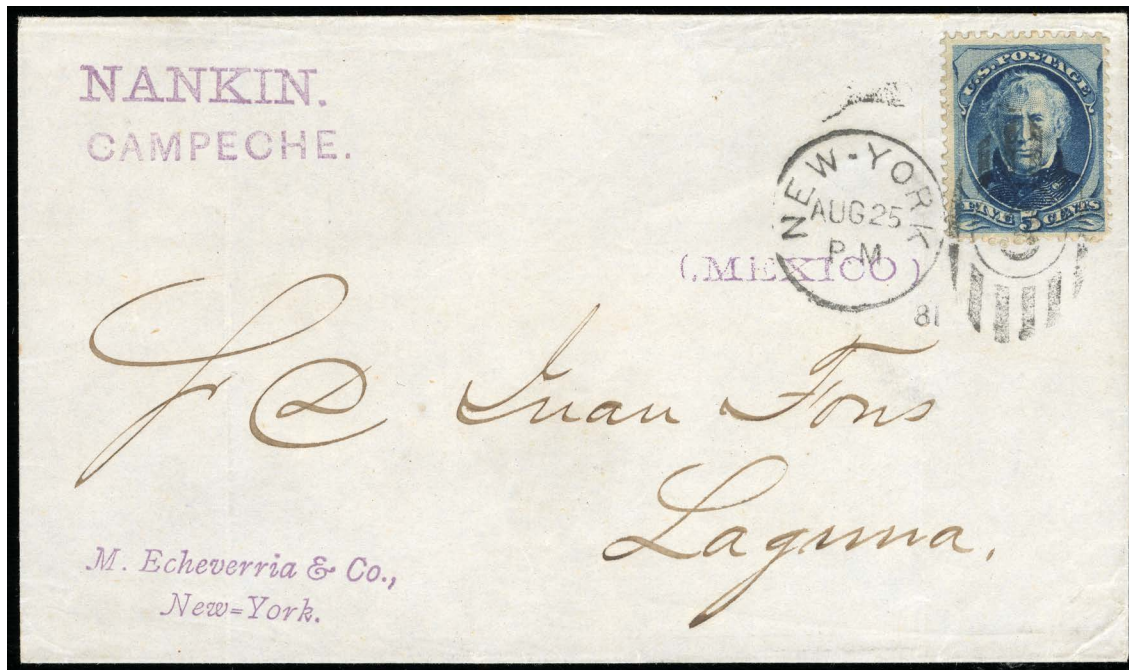 NANKIN.
CAMPECHE.
U.S. POSTAGE
FIVE 5 CENTS
NEW-YORK
AUG 25
P M
81
(MEXICO)
Juan Fons
Laguna.
M. Echeverria & Co.,
New=York.